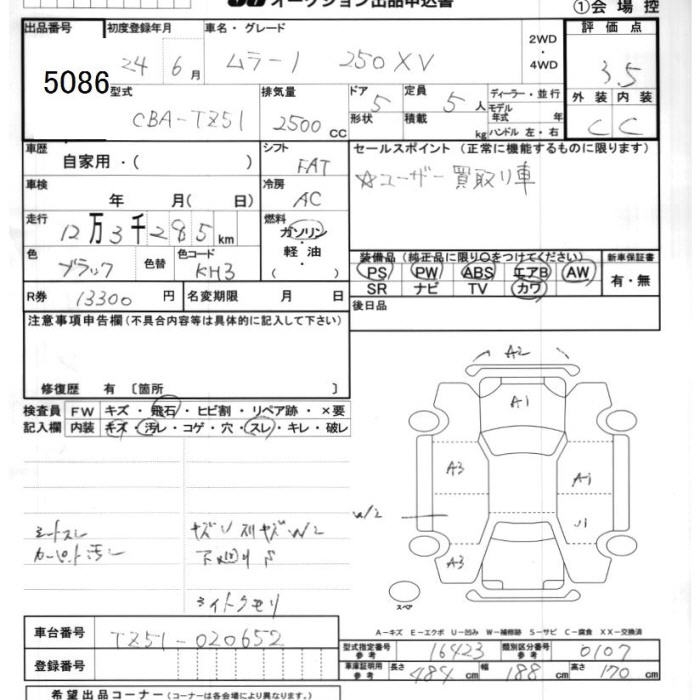 オークション出品申込書
①会場控
出品番号 初度登録年月 車名・グレード 2WD 評価点
5086 24 6月 ムラーノ 250XV ・4WD 3.5
型式 排気量 ドア 5 定員 5人 ディーラー・並行 外装 内装
CBA-TZ51 2500CC 形状 積載 kg モデル年式 年 C C
ハンドル 左・右
車歴 シフト セールスポイント(正常に機能するものに限ります)
自家用・( ) FAT ☆ユーザー買取り車
車検 冷房
年 月( 日) AC
走行 燃料
12万3千285km ガソリン・
軽油・
( )
色 色替 色コード 装備品(純正品に限り○をつけてください) 新車保証書
ブラック KH3 PS PW ABS エアB AW 有・無
SR ナビ TV カワ
R券 13300円 名変期限 月 日 後日品
注意事項申告欄(不具合内容等は具体的に記入して下さい)
修復歴 有〔箇所 〕
検査員 FW キズ・飛石・ヒビ割・リペア跡・×要
記入欄 内装 キズ・汚レ・コゲ・穴・スレ・キレ・破レ
A2
A1
A3
A1
W2
U1
A3
スペア
シートスレ
カーペット汚レ
下廻りサ
ライトクモリ
A-キズ E-エクボ U-凹み W-補修跡 S-サビ C-腐食 XX-交換済
車台番号 TZ51-020652
型式指定番号参考 16423 類別区分番号参考 0107
登録番号
車庫証明用参考 長さ 484cm 幅 188cm 高さ 170cm
希望出品コーナー(コーナーは各会場により異なります)